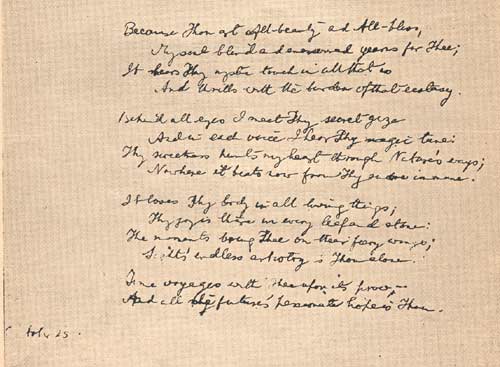 Because Thou art All-beauty and All-bliss,
My soul blind and enamoured yearns for Thee;
It bears Thy mystic touch in all that is
And thrills with the burden of that ecstasy.
Behind all eyes I meet Thy secret gaze
And in each voice I hear Thy magic tune:
Thy sweetness hunts my heart through Nature's ways;
Nowhere it beats now from Thy snare immune.
It loves Thy body in all living things;
Thy joy is there in every leaf and stone:
The moments bring Thee on their fiery wings;
Sight's endless artistry is Thou alone.
Time voyages with Thee upon its prow,—
And all the future's passionate hope is Thou.
25.